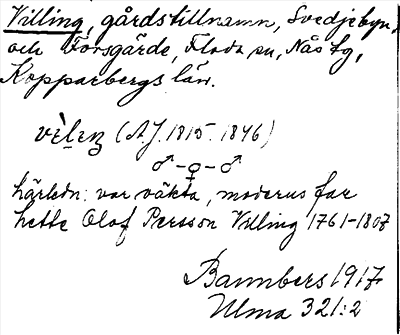 Villing, gårdstillnamn, Svedjebyn,
och Forsgärde, Floda sn, Nås tg,
Kopparbergs län.
(A.J. 1815-1846)
♂-♀-♂
härledn: var väkta, moderns far
hette Olof Persson Villing 1761-1807
Bannbers 1917
Ulma 321:2